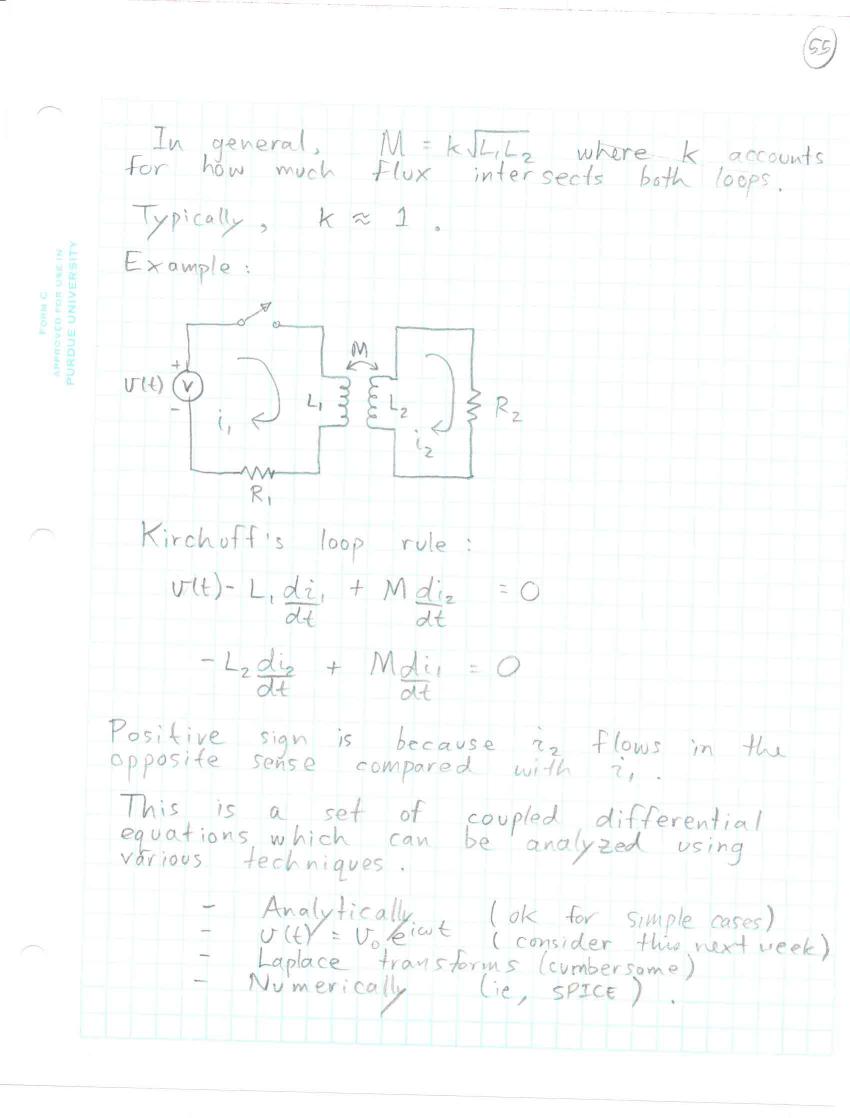 55
In general, M = k√L₁L₂ where k accounts
for how much flux intersects both loops.
Typically, k ≈ 1 .
Example :
FORM C
APPROVED FOR USE IN
PURDUE UNIVERSITY
M
+
v(t) V L₁ L₂ R₂
-
i₁ i₂
R₁
Kirchoff's loop rule :
v(t) - L₁ di₁/dt + M di₂/dt = 0
- L₂ di₂/dt + M di₁/dt = 0
Positive sign is because i₂ flows in the
opposite sense compared with i₁ .
This is a set of coupled differential
equations which can be analyzed using
various techniques .
- Analytically (ok for simple cases)
- v(t) = v₀ e^iωt (consider this next week)
- Laplace transforms (cumbersome)
- Numerically (ie, SPICE) .